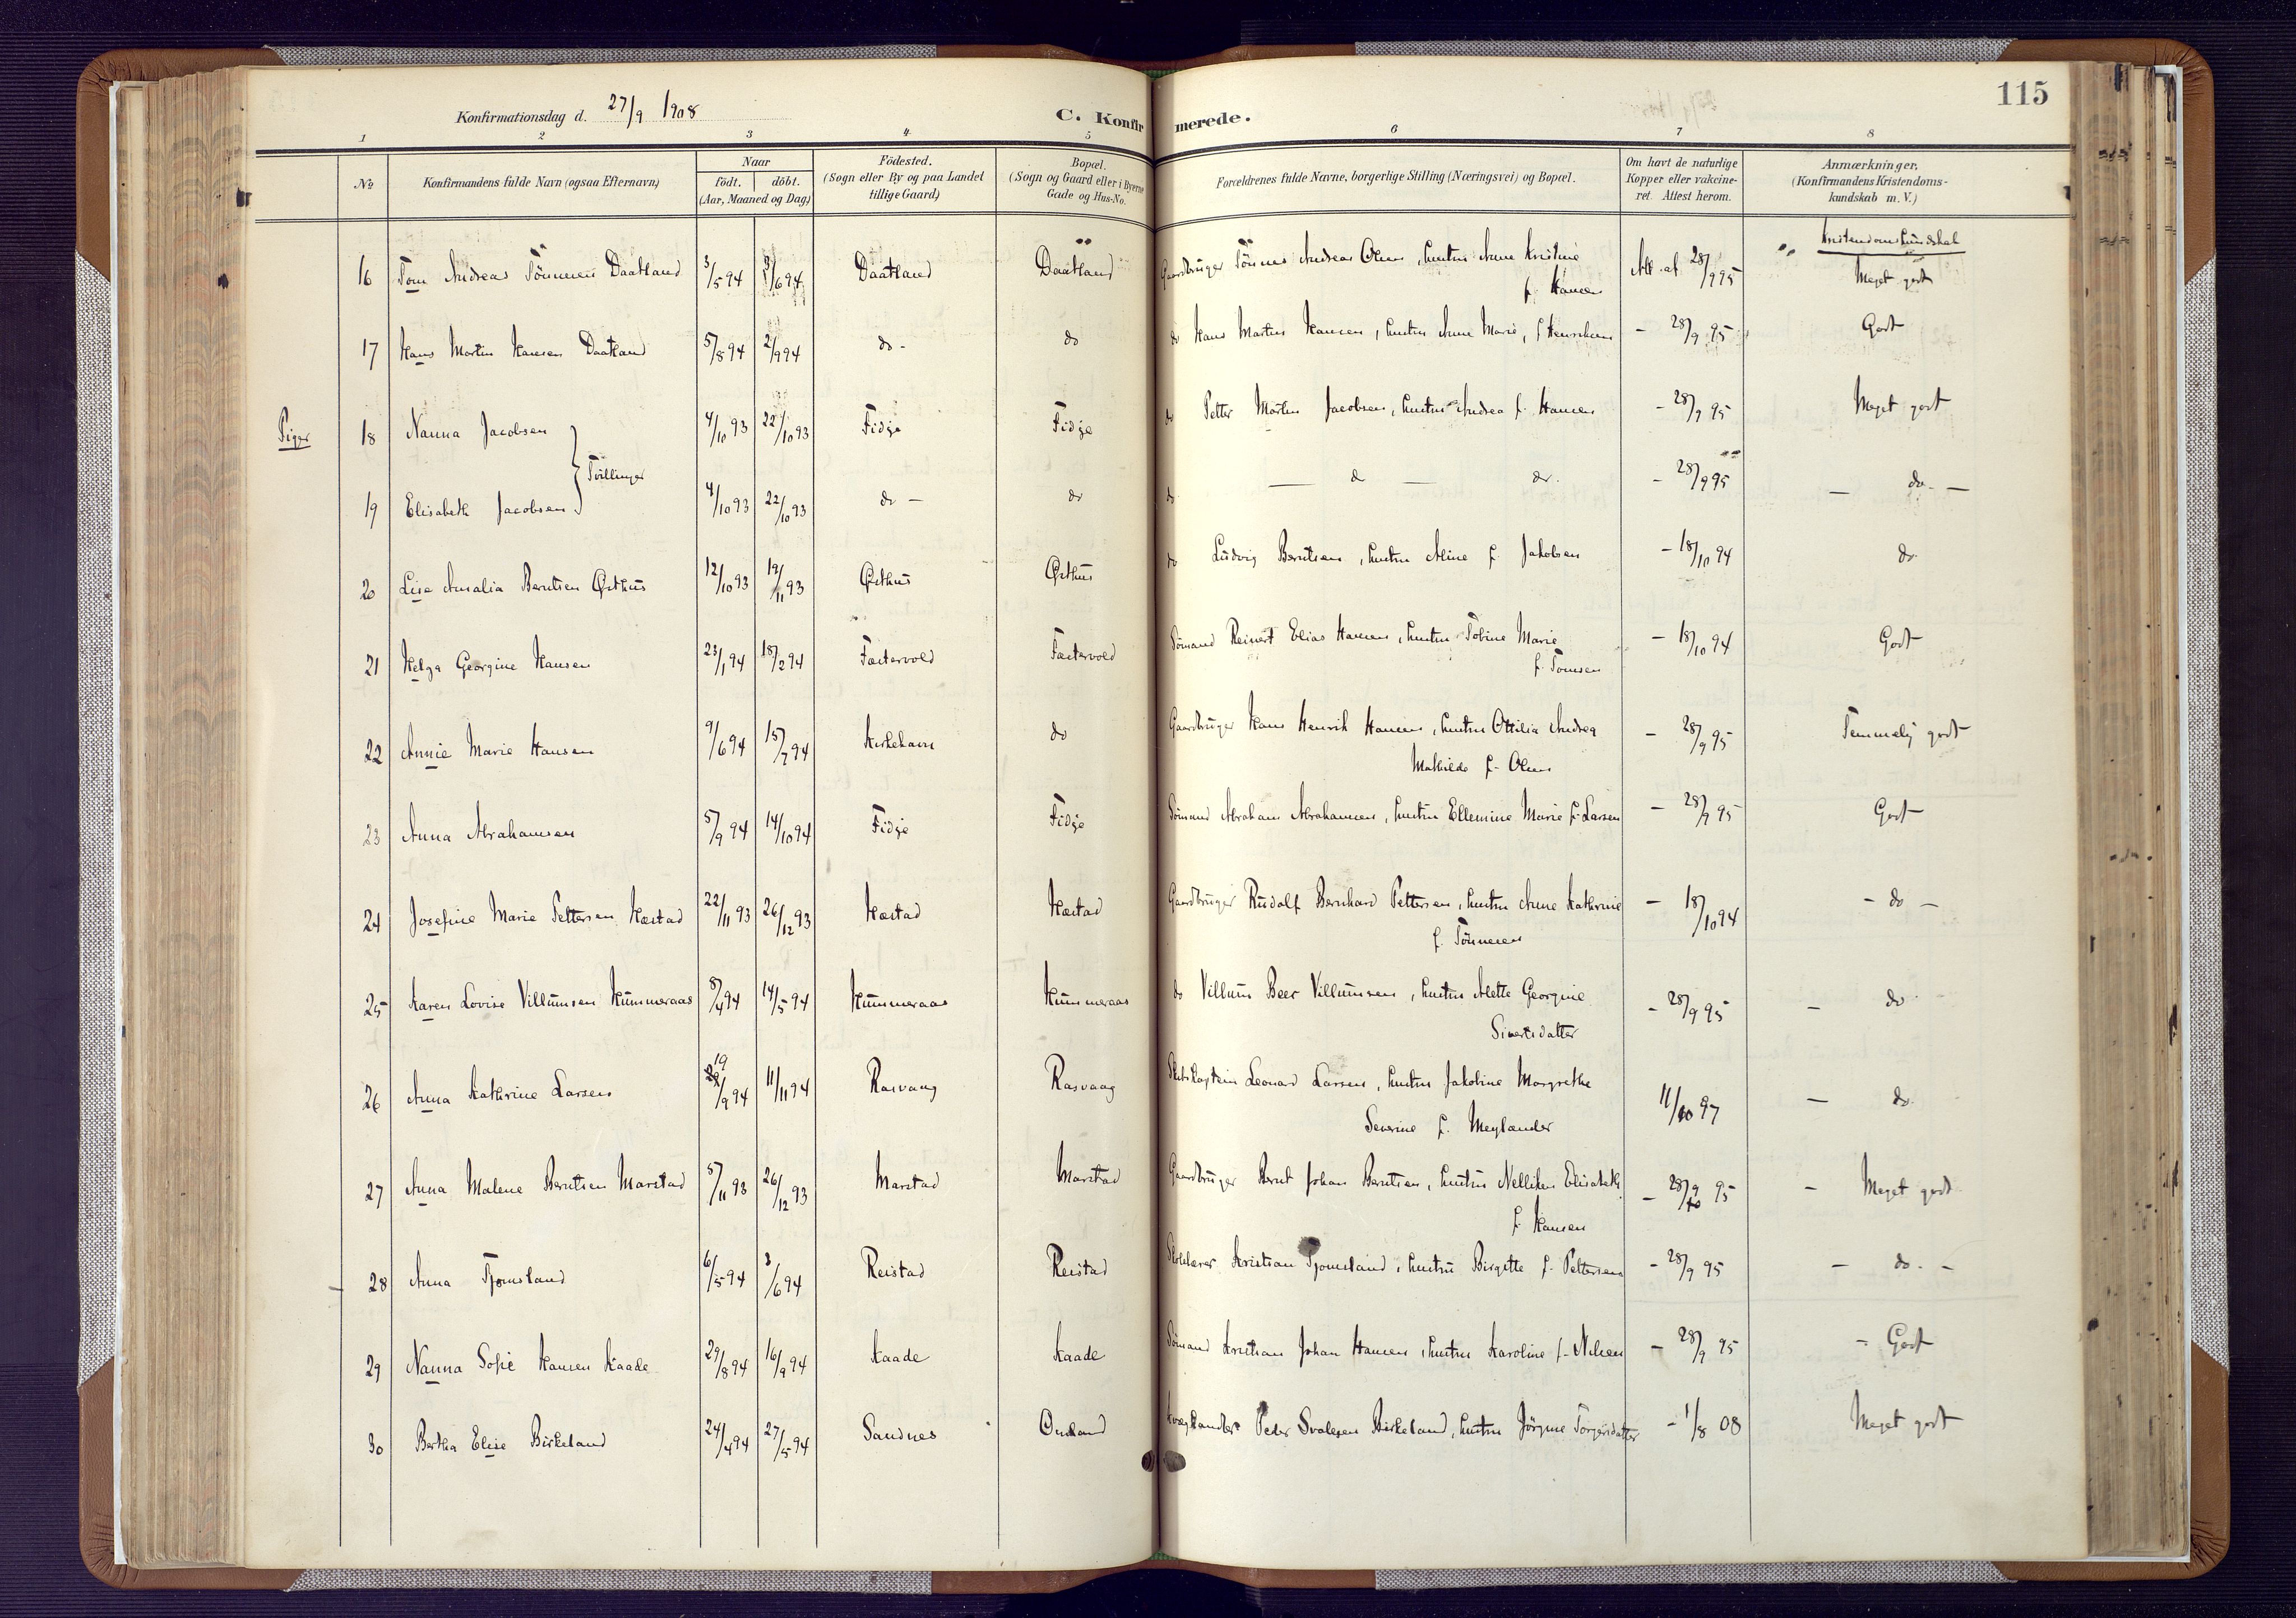 115
Konfirmationsdag d. 27/9 1908
C. Konfirmerede.
1 2 3 4 5 6 7 8
No
Konfirmandens fulde Navn (ogsaa Efternavn)
Naar
födt. döbt.
(Aar, Maaned og Dag)
Födested.
(Sogn eller By og paa Landet
tillige Gaard)
Bopæl.
(Sogn og Gaard eller i Byerne
Gade og Hus-No.
Forældrenes fulde Navne, borgerlige Stilling (Næringsvei) og Bopæl.
Om havt de naturlige
Kopper eller vakcine-
ret. Attest herom.
Anmærkninger,
(Konfirmandens Kristendoms-
kundskab m. V.)
Kristendomskundskab
16 Tom Andreas Tönnesen Daatland 3/5 94 3/6 94 Daatland Daatland Gaardbruger Tönnes Andreas Olsen, hustru Anne Kristine Att. af 28/9 95 Meget godt
f. Hansen
17 Hans Martin Hansen Daatland 5/8 94 2/9 94 do - do do Hans Martin Hansen, hustru Anne Marie, f. Henriksen - 28/9 95 Godt
Piger
18 Nanna Jacobsen 4/10 93 22/10 93 Fidje Fidje do Petter Martin Jacobsen, hustru Andrea f. Hansen - 28/9 95 Meget godt
} Tvillinger
19 Elisabeth Jacobsen 4/10 93 22/10 93 do - do do — do — do. - 28/9 95 — do. —
20 Lise Amalia Berntsen Østhus 12/10 93 19/11 93 Østhus Østhus do Ludvig Berntsen, hustru Aline f. Jakobsen - 18/10 94 do
21 Helga Georgine Hansen 23/1 94 18/2 94 Fæstervold Fæstervold Sømand Reinert Elias Hansen, hustru Tobine Marie - 18/10 94 Godt
f. Tomsen
22 Annie Marie Hansen 9/6 94 15/7 94 Kirkehavn do Gaardbruger Hans Henrik Hansen, hustru Ottilia Andrea - 28/9 95 Temmelig godt
Mathilde f. Olsen
23 Anna Abrahamsen 5/9 94 14/10 94 Fidje Fidje Sømand Abraham Abrahamsen, hustru Ellemine Marie f. Larsen - 28/9 95 Godt
24 Josefine Marie Pettersen Hæstad 22/11 93 26/12 93 Hæstad Hæstad Gaardbruger Rudolf Bernhard Pettersen, hustru Anne Kathrine - 18/10 94 - do -
f. Tönnesen
25 Karen Lovise Villumsen Kummeraas 8/4 94 14/5 94 Kummeraas Kummeraas do Villum Beer Villumsen, hustru Mette Georgine - 28/9 95 - do
Sivertsdatter
26 Anna Kathrine Larsen 19/9 94 11/11 94 Rasvaag Rasvaag Skibskaptein Leonard Larsen, hustru Jakobine Margrethe 11/10 97 - do.
Severine f. Meylander
27 Anna Malene Berntsen Marstad 5/11 93 26/12 93 Marstad Marstad Gaardbruger Bernt Johan Berntsen, hustru Nelliken Elisabeth - 28/9 95 - Meget godt
f. Hansen
28 Anna Tjomsland 6/5 94 3/6 94 Reistad Reistad Skolelærer Kristian Tjomsland, hustru Birgitte f. Pettersen - 28/9 95 - do. -
29 Nanna Sofie Hansen Kaade 29/8 94 16/9 94 Kaade Kaade Sømand Kristian Johan Hansen, hustru Karoline f. Nilsen - 28/9 95 - Godt
30 Bertha Elise Birkeland 24/4 94 27/5 94 Sandnes Ousland Peder Svalesen Birkeland, hustru Jörgine Torgersdatter - 1/8 08 Meget godt